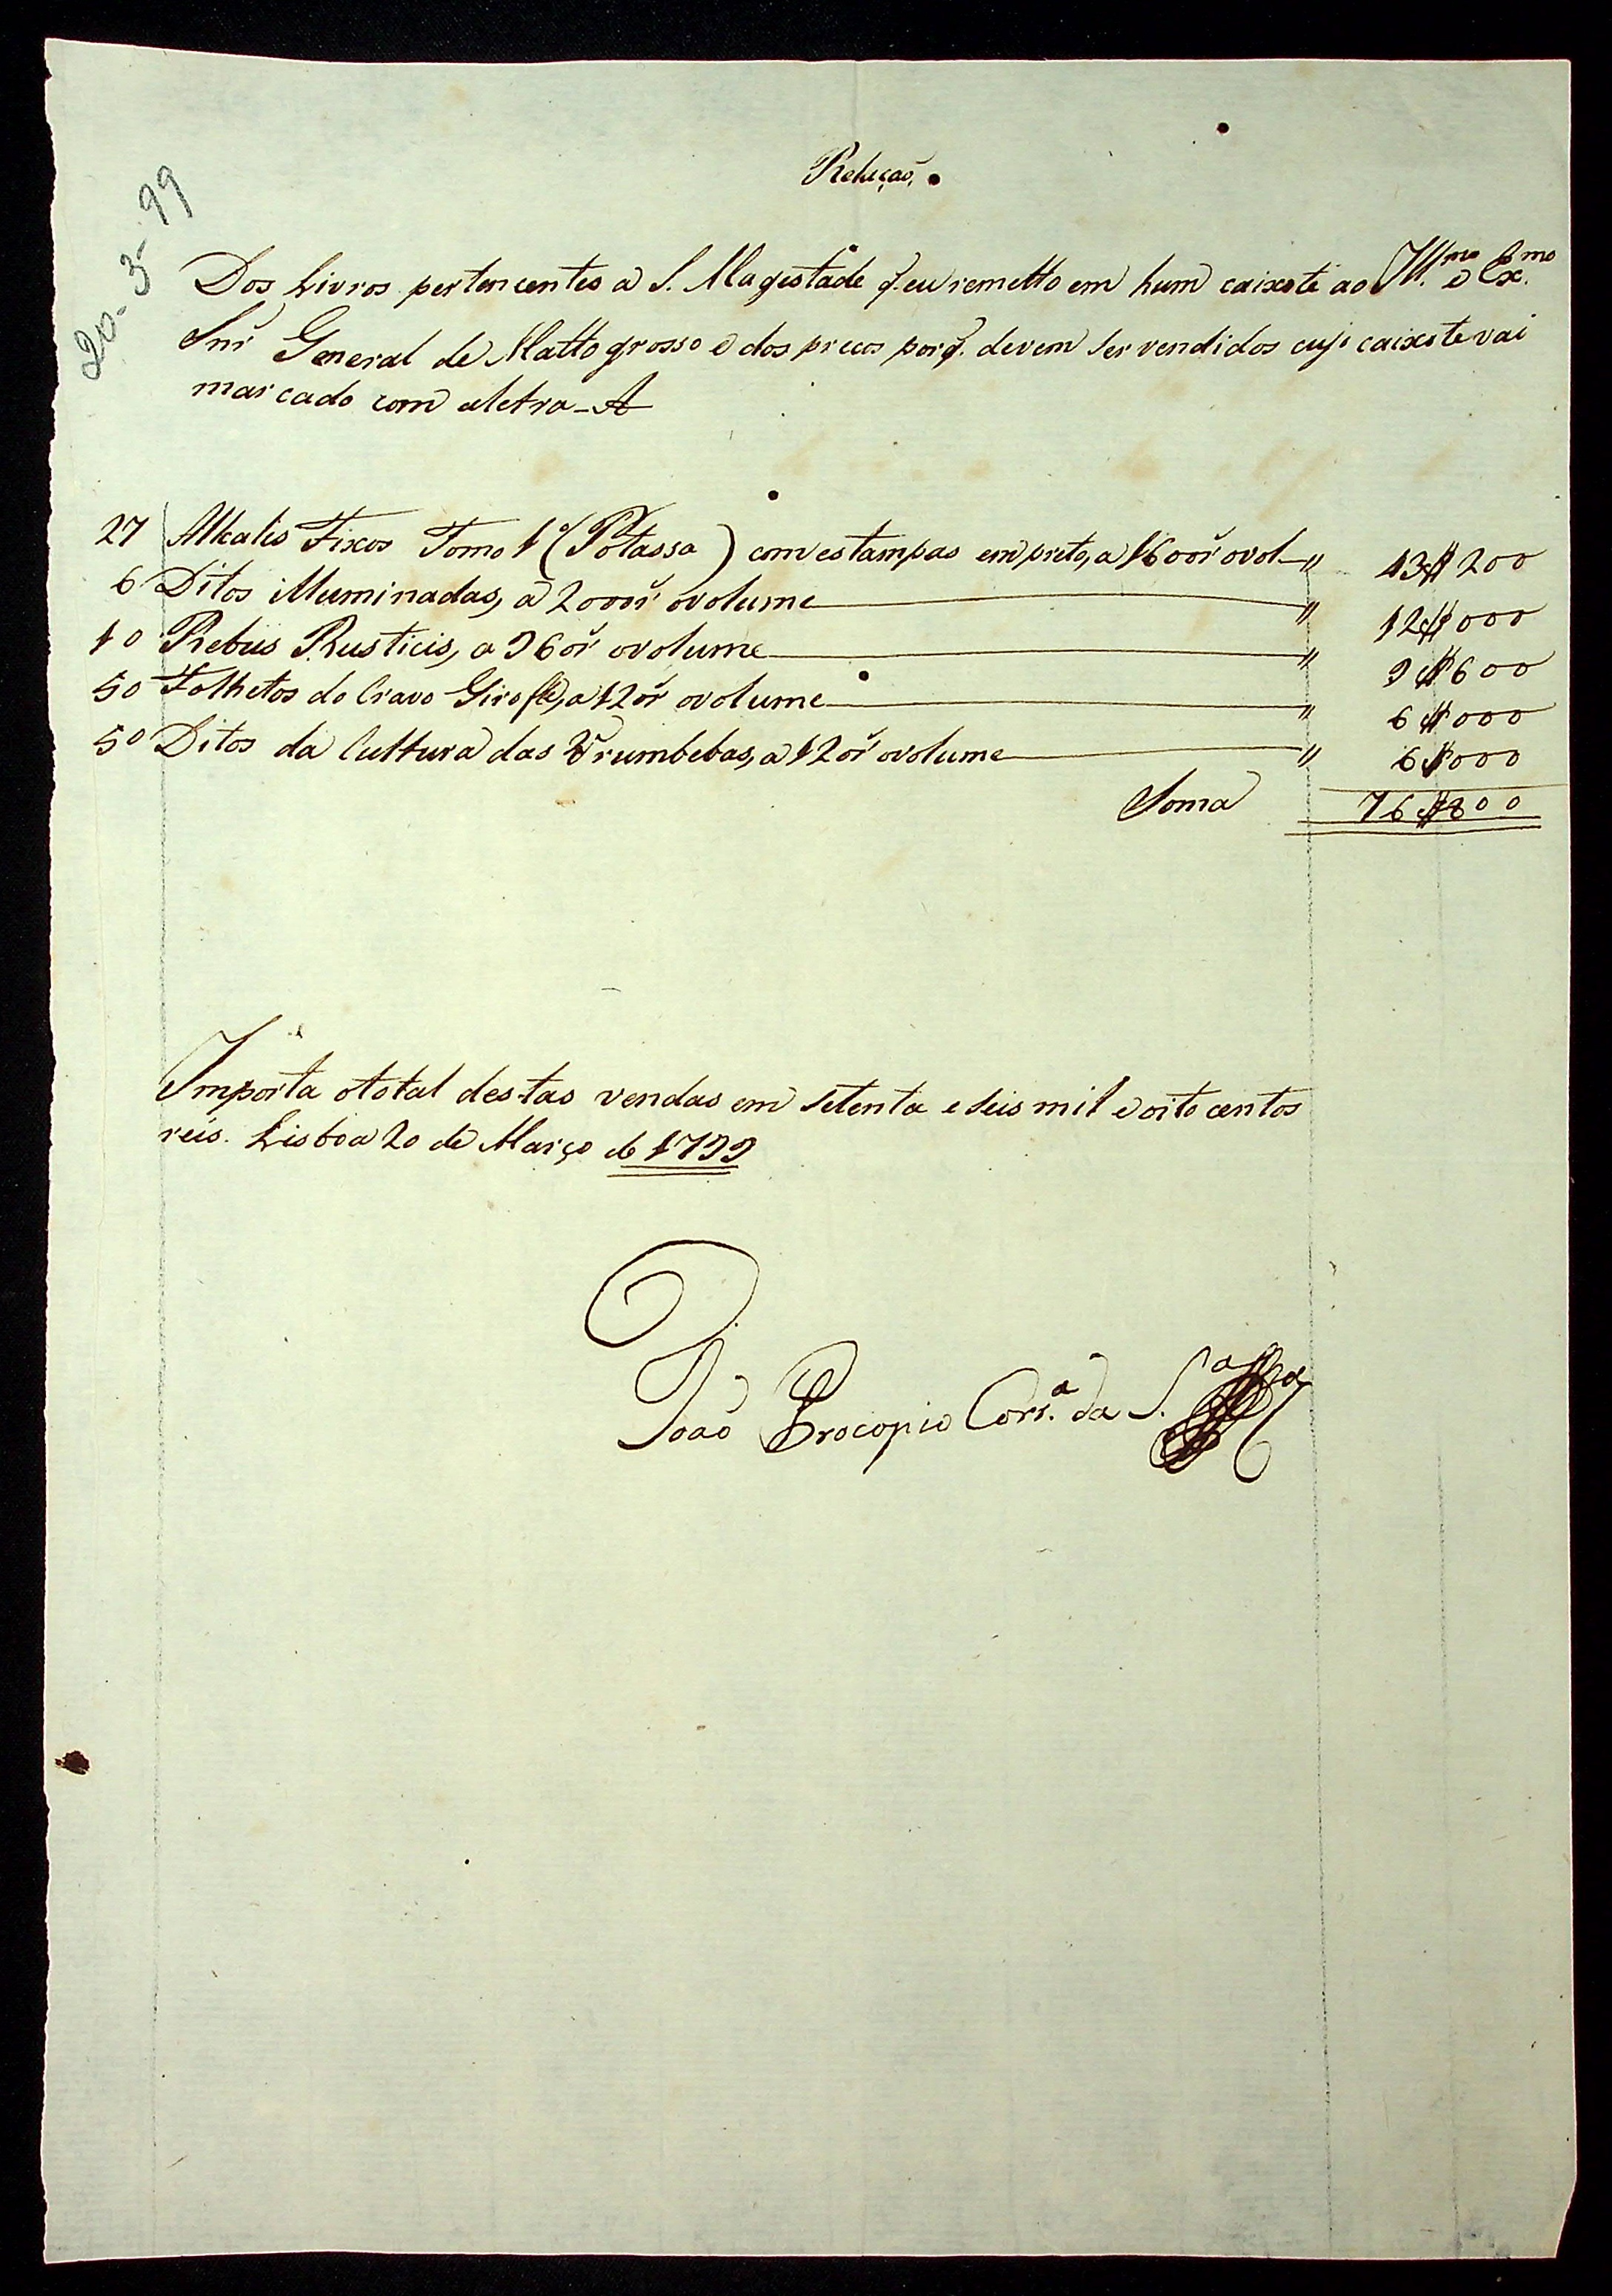 20-3-99
Relaçaõ.
Dos Livros pertencentes a S. Magestade q. eu remetto em hum caixote ao Ill.mo e Ex.mo
Snr General de Matto grosso e dos precos por q. devem ser vendidos cujo caixote vai
marcado com aletra-A
27 Alkalis Fixos Tomo 1º (Potassa) com estampas em preto, a 1600r ovol-" 43$200
6 Ditos illuminadas, a 2000r ovolume " 12$000
10 Rebus Rusticis, a 960r ovolume " 9$600
50 Folhetos do Cravo Girofle, a 120r ovolume " 6$000
50 Ditos da Cultura das Urumbebas, a 120r ovolume " 6$000
Soma 76$800
Importa ototal destas vendas em setenta e seis mil e oito centos
reis. Lisboa 20 de Março de 1799
Joaõ Procopio Corr.a da S.a